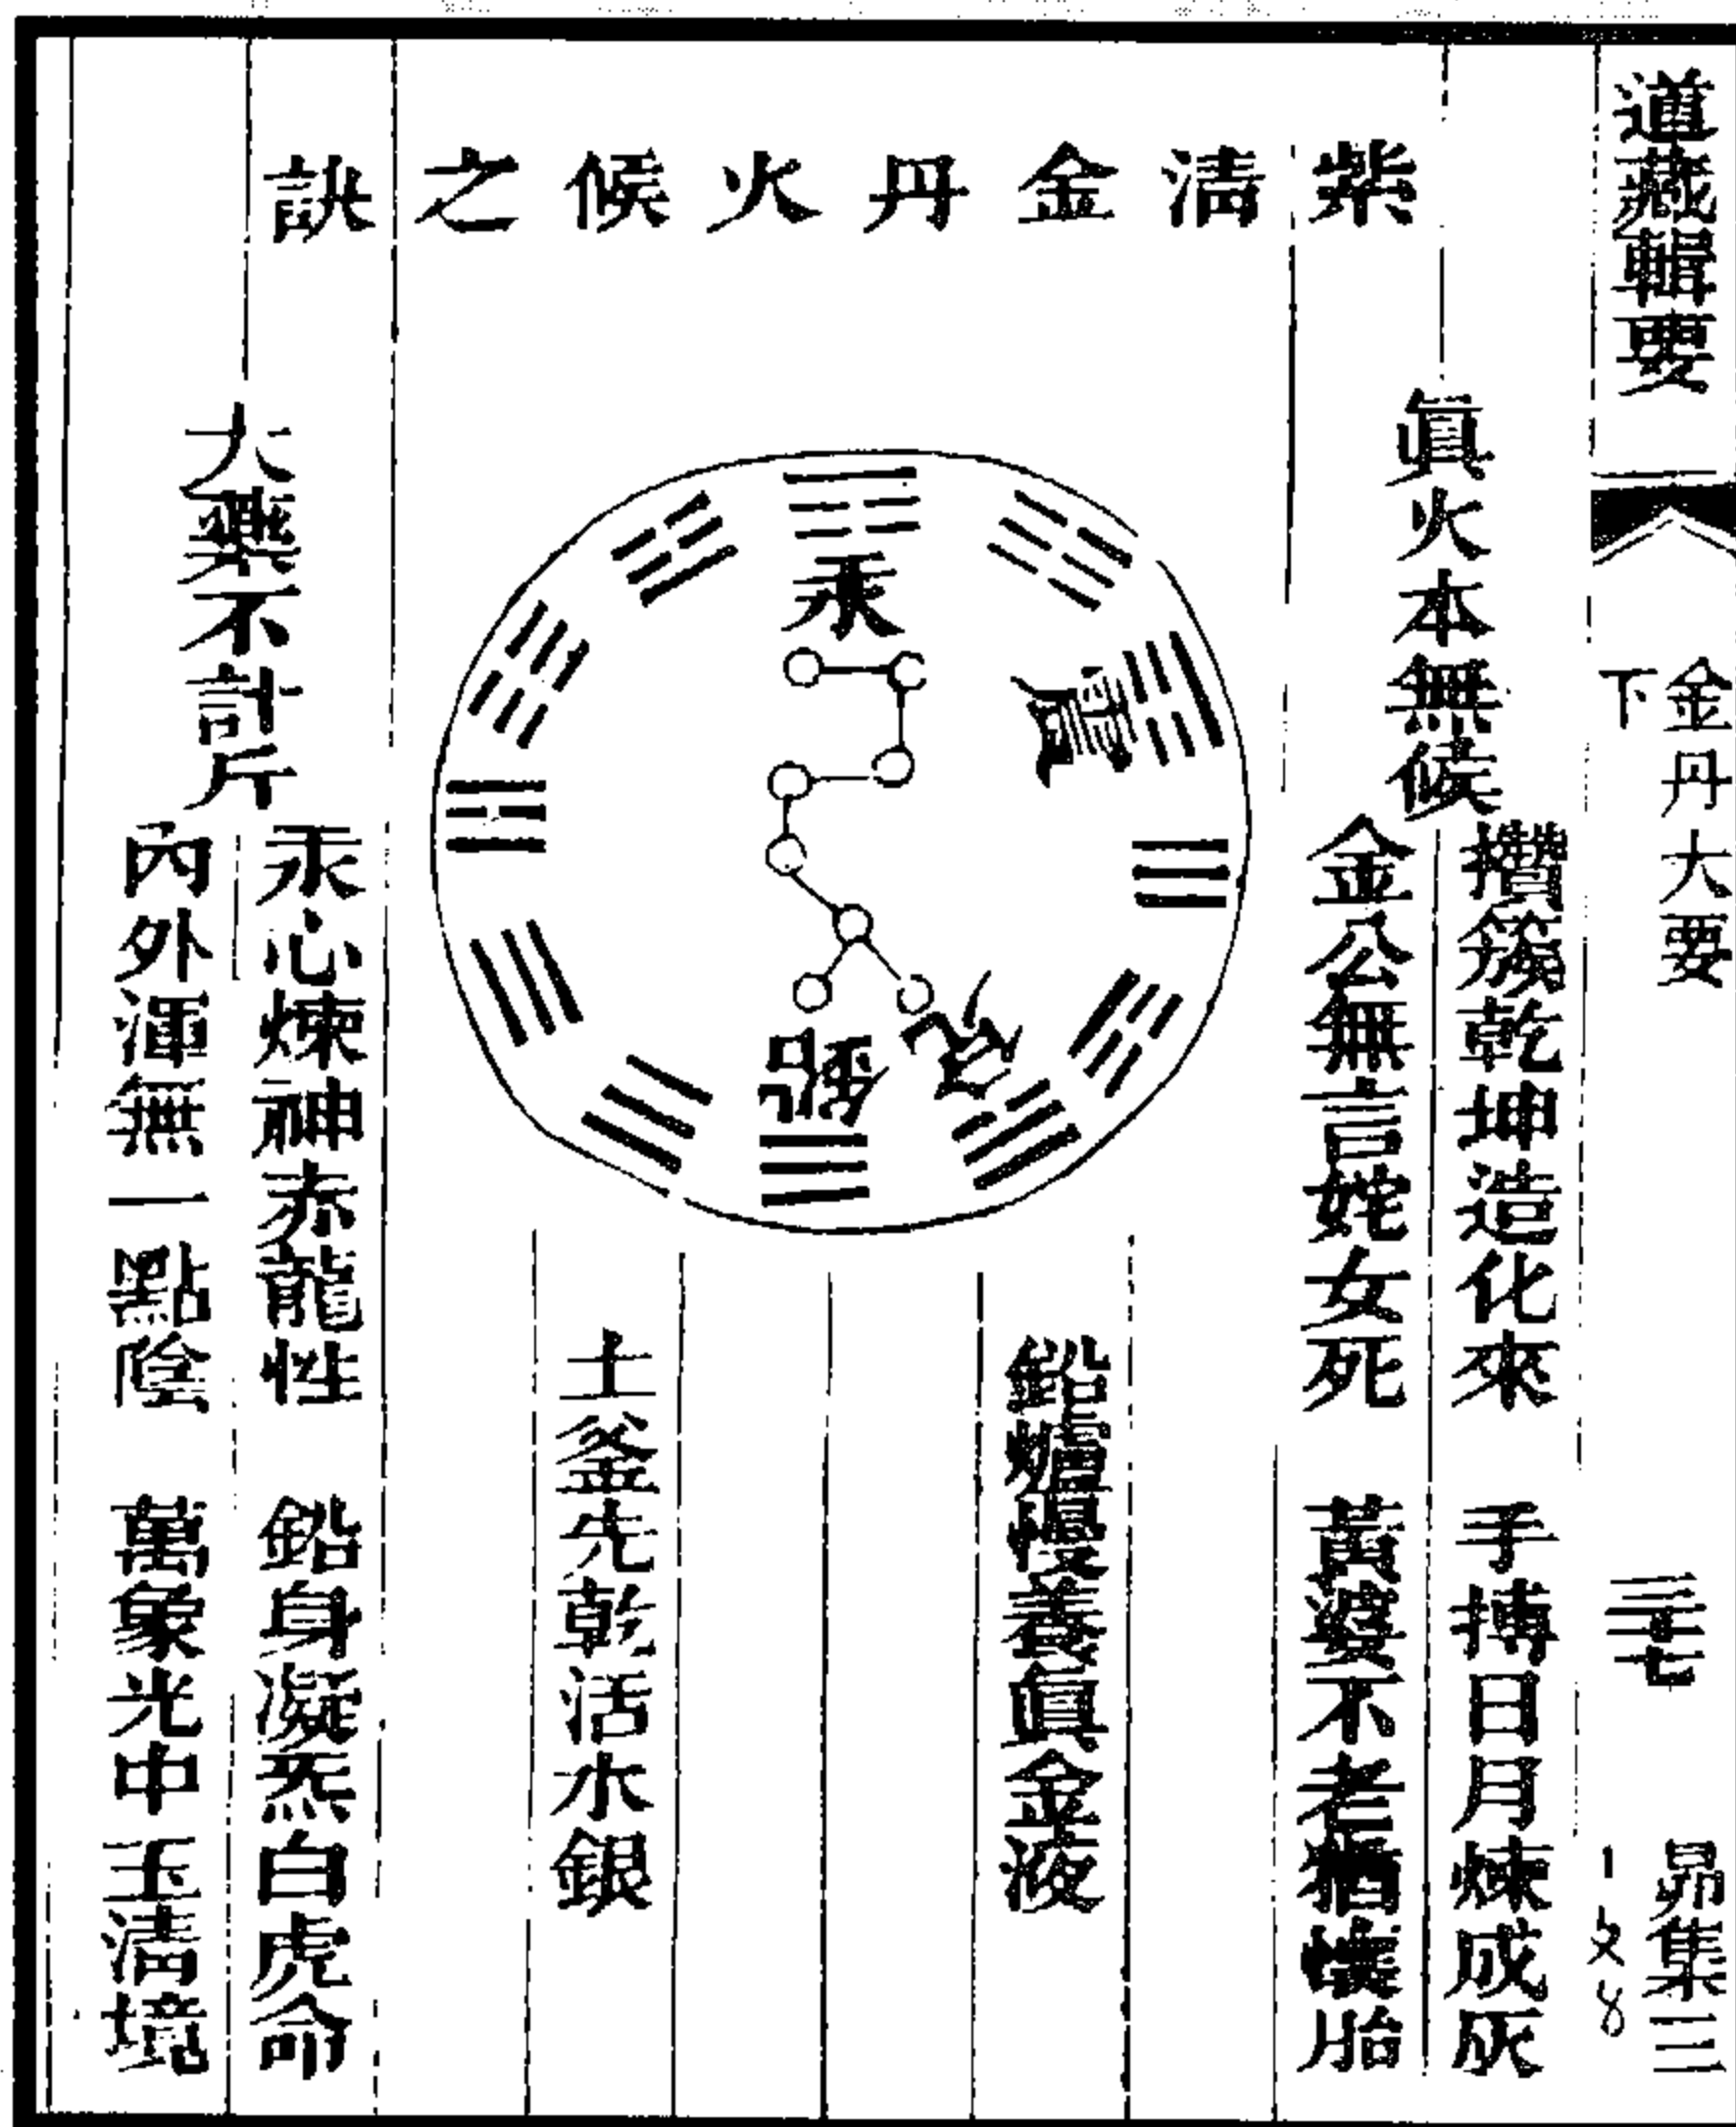 道藏輯要
金丹大要
下
三十七
昴集三
紫淸金丹火候之訣
眞火本無候
攢簇乾坤造化來　手摶日月煉成灰
金公無言姹女死　黃婆不老猶懷胎
汞
鉛
鉛爐慢養眞金液
土釜先乾活水銀
大藥不計斤
汞心煉神赤龍性　鉛身凝炁白虎命
內外渾無一點陰　萬象光中玉淸境